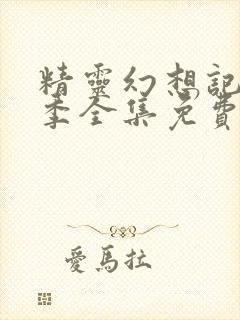 精靈幻想記
季全集免費
愛馬拉